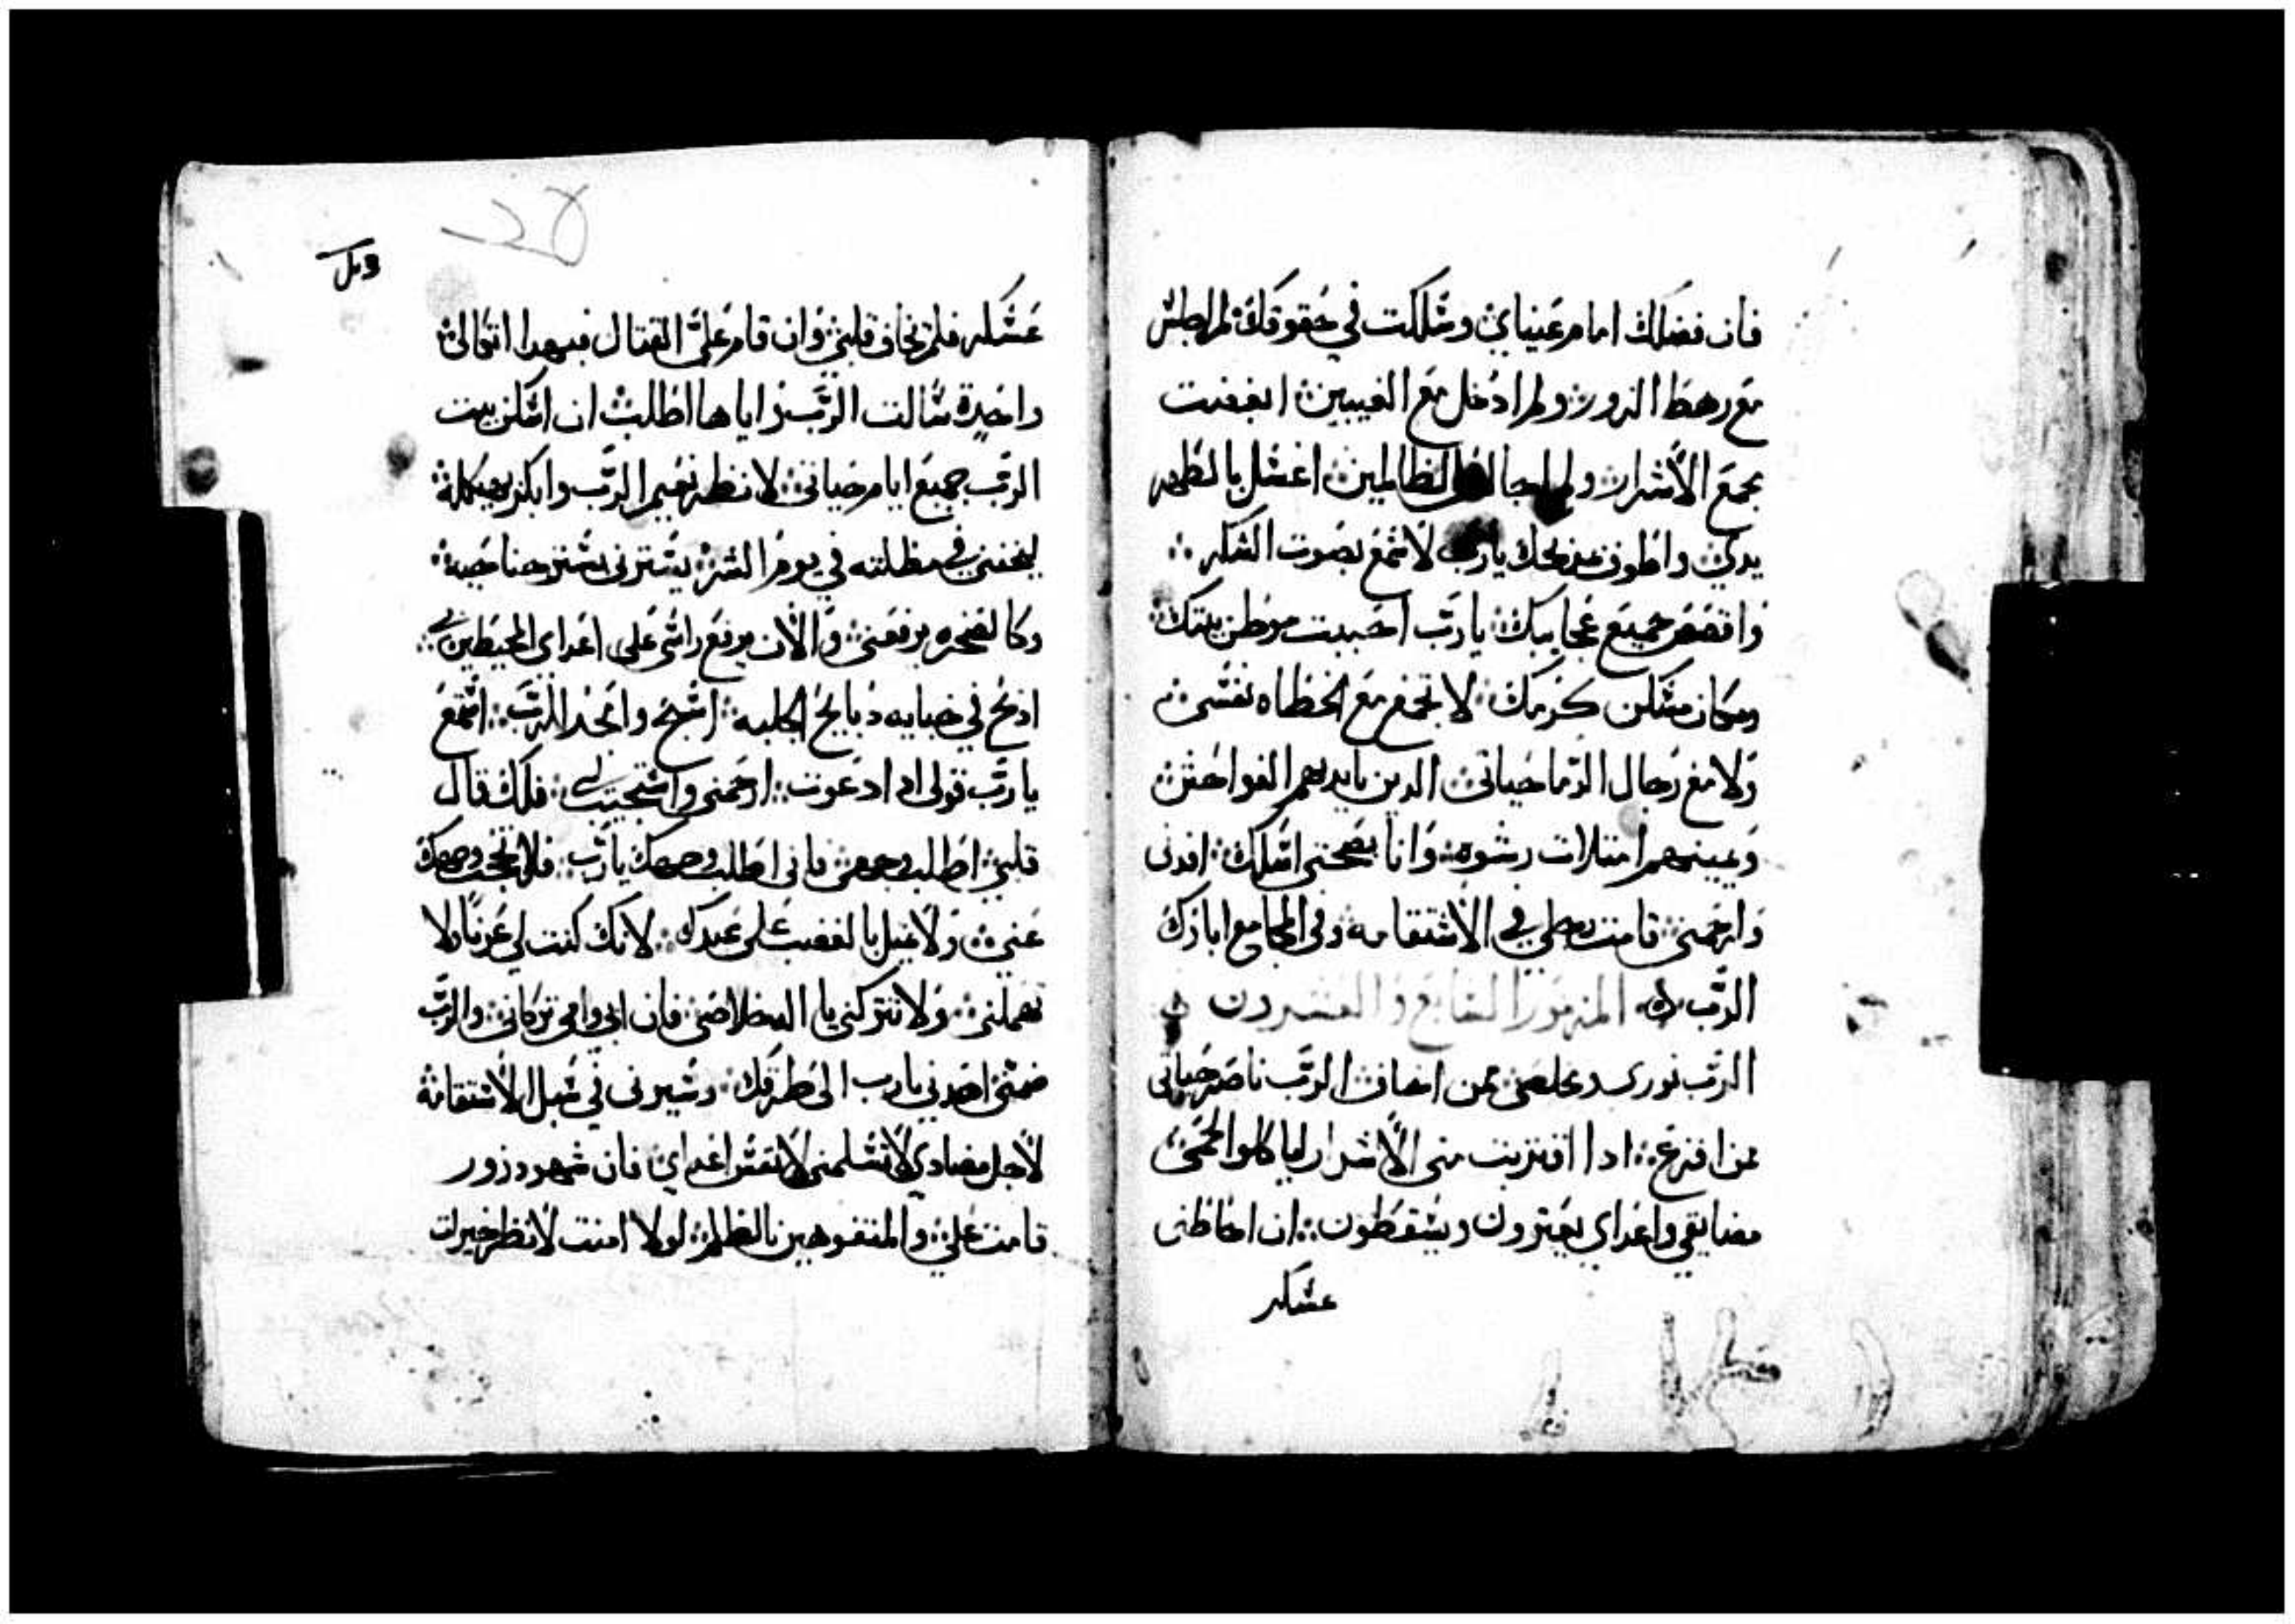 فان فضلك امام عيناي وسلكت في حقوقك لم اجلس
مع رهط الزور ولم ادخل مع الغيبين ابغضت
مجمع الاشرار ولم اجالس الظالمين اغسل بالطهر
يدي واطوف بمذبحك يارب لاسمع بصوت الشكر
واقصص جميع عجايبك يا رب احببت موطن بيتك
ومكان مسكن كرمك لا تجمع مع الخطاه نفسي
ولا مع رجال الدما حياتي الدين بايديهم الفواحش
ويمينهم امتلات رشوه وانا بصحتي اسلك افدني
وارحمني قامت رجلي في الاستقامه وفي المجامع ابارك
الرب المزمور السابع والعشرون
الرب نوري ومخلصي ممن اخاف الرب ناصر حياتي
ممن افزع ادا اقتربت مني الاشرار لياكلوا لحمي
مضايقي واعداي يعترون ويسقطون ان احاطني
عسكر
عسكر فلن يخاف قلبي وان قام علي القتال فبهدا اتكالي
واحدة سالت الرب واياها اطلب ان اسكن بيت
الرب جميع ايام حياتي لانظر نعيم الرب وابكر بهيكله
ليخفني في مظلته في يوم الشر يسترني بستر جناحيه
وكالصخره يرفعني والان يرفع راسي على اعداي المحيطين بي
ادبح في خبايه دبايح الجلبه اسبح وامجد الرب اسمع
يا رب قولي اد ادعوت ارحمني واستجيب لي فلك قال
قلبي اطلب وجهي فاني اطلب وجهك يا رب فلا تحجب وجهك
عني ولا تميل بالغضب على عبدك لانك كنت لي عونا ولا
تهملني ولا تتركني يا اله خلاصي فان ابي وامي تركاني والرب
ضمني اهدني يارب الى طرقك وسيرني في سبل الاستقامة
لاجل مضادي لا تسلمني لانفس اعداي فان شهود زور
قامت علي والمتفوهين بالظلم لولا امنت لانظر خيرات